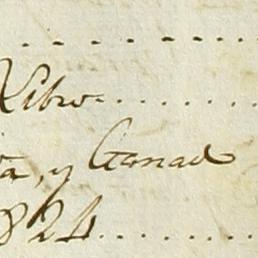 Libro
a, y Ganad
824